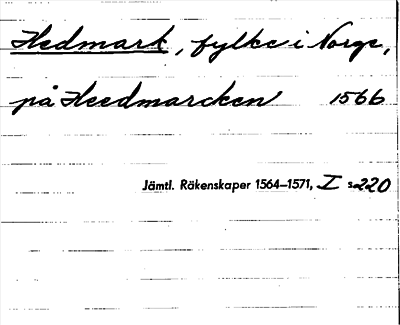 Hedmark, fylke i Norge,
på Heedmarcken 1566
Jämtl. Räkenskaper 1564–1571, I s. 220